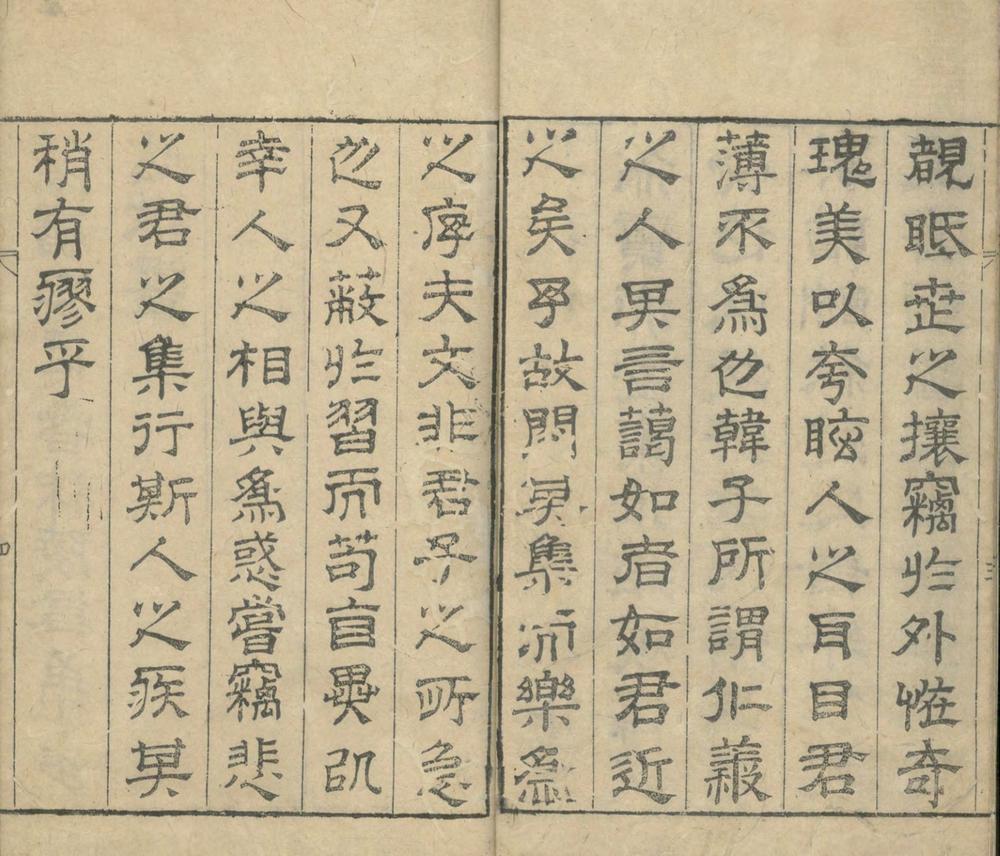 眡之攘竊於外恠奇
瑰美以夸眩人之耳目君
薄不為也韓子所謂仁義
之人其言藹如者如君近
之矣予故閱其集而樂為
之序夫文非君子之所急
也又蔽於習而苟自異
幸人之相與為惑嘗竊悲
之君之集行斯人之疾其
稍有瘳乎